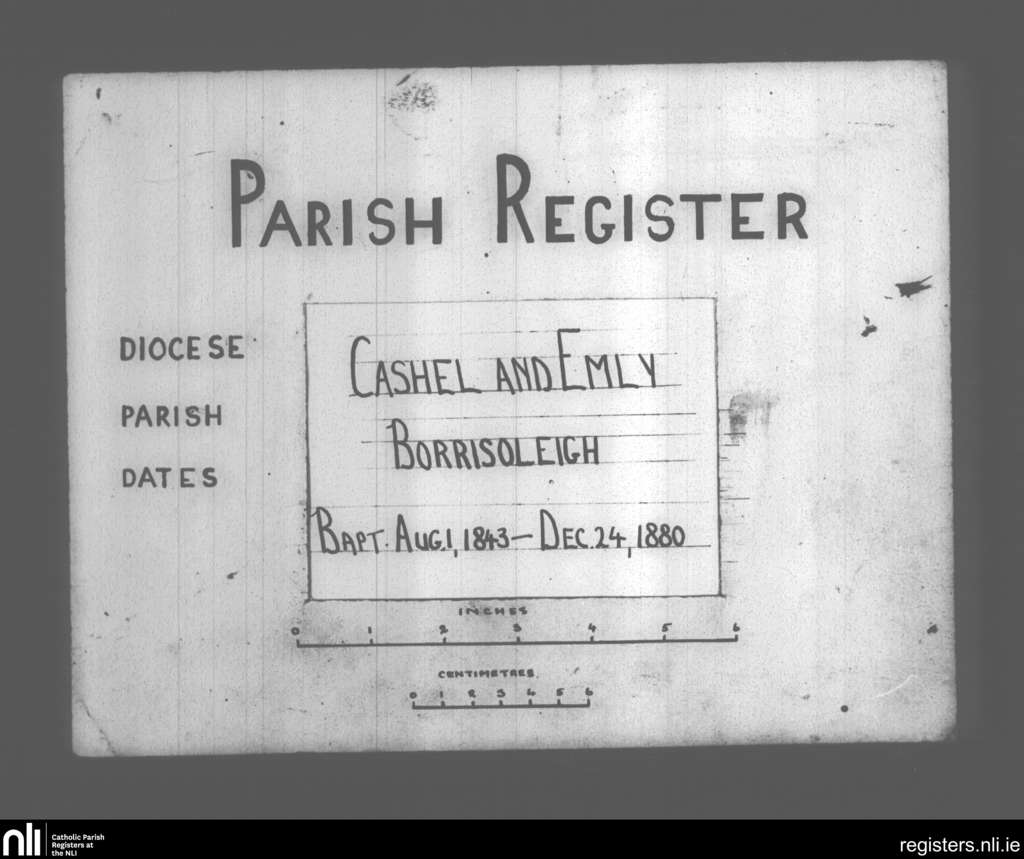 PARISH REGISTER
DIOCESE CASHEL AND EMLY
PARISH BORRISOLEIGH
DATES BAPT. AUG. 1, 1843 – DEC. 24, 1880
INCHES
0 1 2 3 4 5 6
CENTIMETRES
0 1 2 3 4 5 6
nli Catholic Parish
Registers at
the NLI
registers.nli.ie